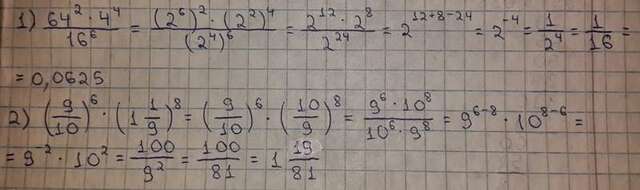 1) 64² · 4⁴ / 16⁶ = (2⁶)² · (2²)⁴ / (2⁴)⁶ = 2¹² · 2⁸ / 2²⁴ = 2¹²⁺⁸⁻²⁴ = 2⁻⁴ = 1/2⁴ = 1/16 =
= 0,0625
2) (9/10)⁶ · (1 1/9)⁸ = (9/10)⁶ · (10/9)⁸ = 9⁶ · 10⁸ / 10⁶ · 9⁸ = 9⁶⁻⁸ · 10⁸⁻⁶ =
= 9⁻² · 10² = 100/9² = 100/81 = 1 19/81